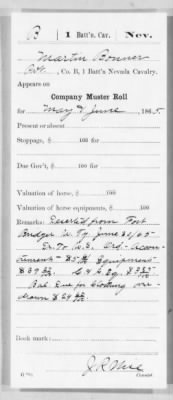 B | 1 Batt'n. Cav. | Nev.
Martin Bonner
Pvt., Co. B, 1 Batt'n Nevada Cavalry.
Appears on
Company Muster Roll
for May & June, 1865.
Present or absent
Stoppage, $ 100 for
Due Gov't, $ 100 for
Valuation of horse, $ 100
Valuation of horse equipments, $ 100
Remarks: Deserted from Fort
Bridger U. Ty. June 30/65
Dr. To U.S. Ord. Accou-
trements $5
Equipments
$39 C & G Eq. $3
Bal. Due for Clothing over-
drawn $29
Book mark:
Copyist.